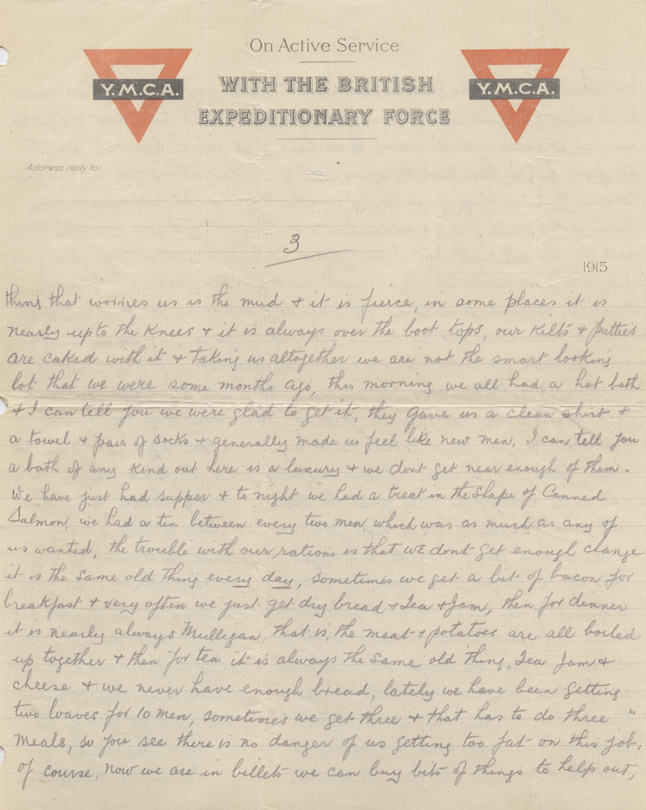 On Active Service
WITH THE BRITISH
EXPEDITIONARY FORCE
Y.M.C.A.
Y.M.C.A.
Address reply to:
3
1915
thing that worries us is the mud & it is fierce, in some places it is
nearly up to the Knees & it is always over the boot tops, our Kilts & putties
are caked with it & taking us altogether we are not the smart looking
lot that we were some months ago, this morning we all had a hot bath
& I can tell you we were glad to get it, they gave us a clean shirt &
a towel & pair of socks & generally made us feel like new men, I can tell you
a bath of any kind out here is a luxury & we dont get near enough of them.
We have just had supper & to night we had a treat in the shape of Canned
Salmon, we had a tin between every two men, which was as much as any of
us wanted, the trouble with our rations is that we dont get enough change
it is the same old thing every day, sometimes we get a bit of bacon for
breakfast & very often we just get dry bread & Tea & Jam, then for dinner
it is nearly always Mulligan, that is, the meat & potatoes are all boiled
up together & then for tea it is always the same old thing, Tea Jam &
cheese & we never have enough bread, lately we have been getting
two loaves for 10 men, sometimes we get three & that has to do three "
meals, so you see there is no danger of us getting too fat on this job,
of course, now we are in billets we can buy bits of things to help out,